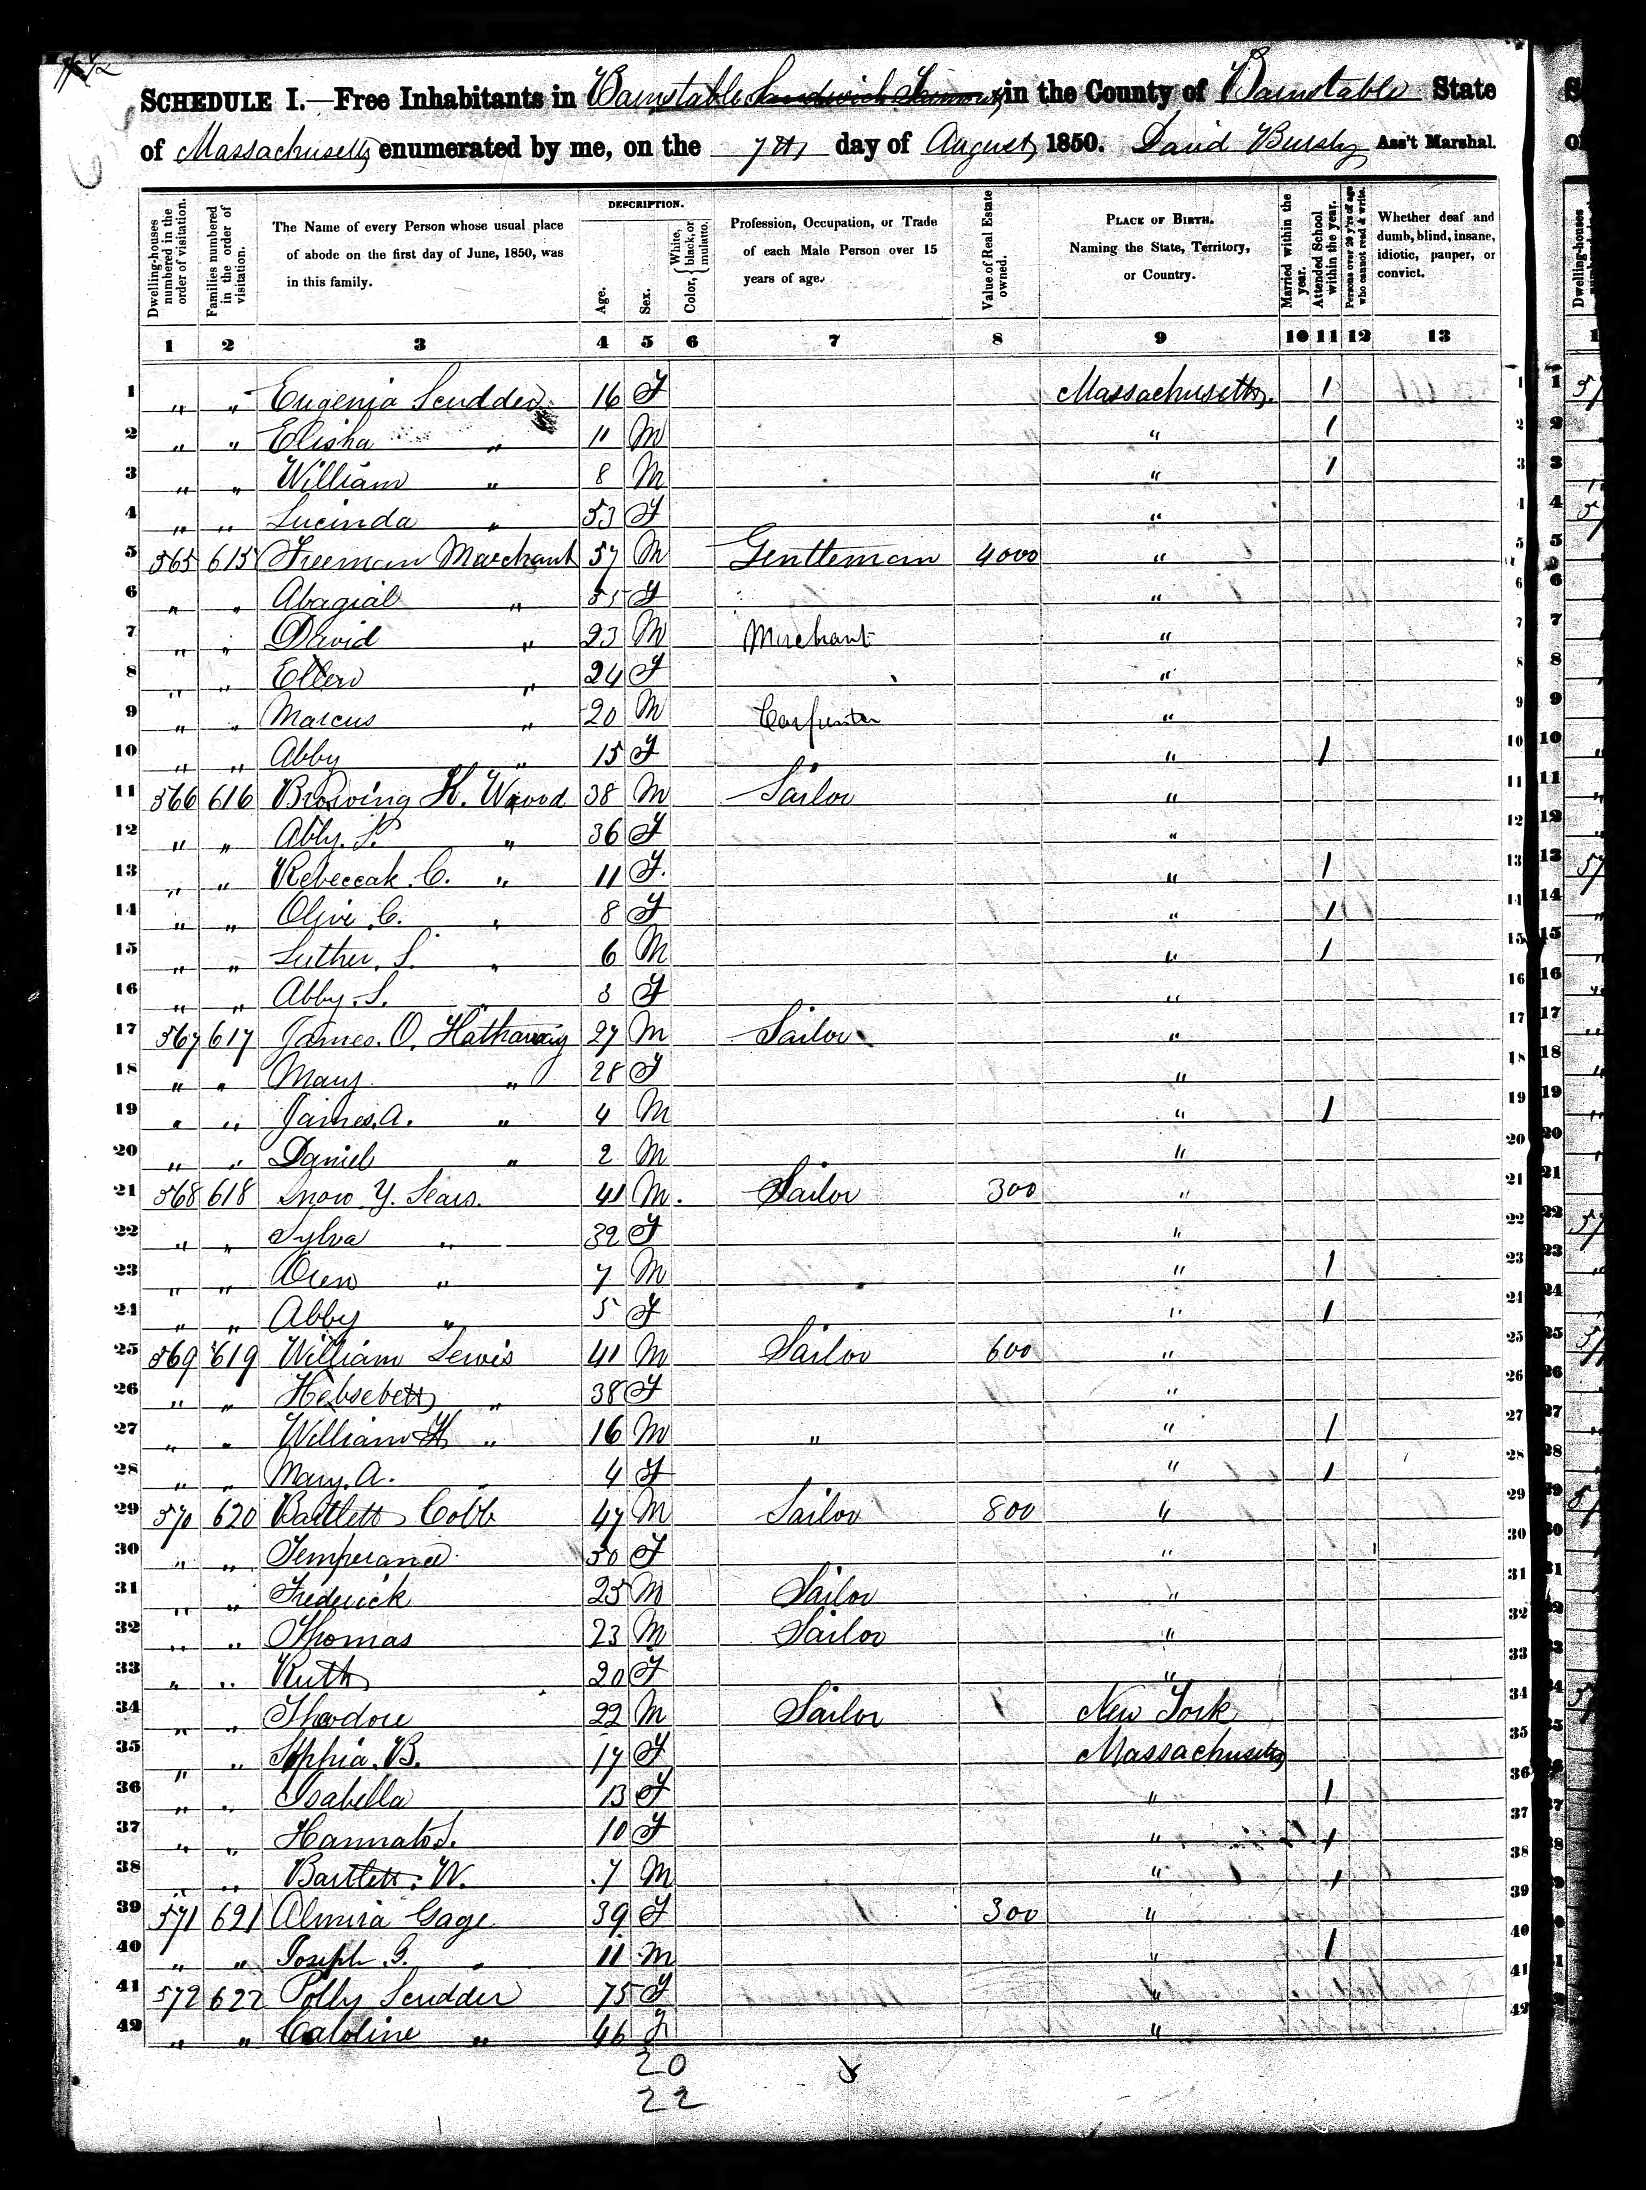 SCHEDULE I.—Free Inhabitants in Barnstable in the County of Barnstable State
of Massachusetts enumerated by me, on the 7th day of August 1850. David Bursley Ass't Marshal.
Dwelling-houses numbered in the order of visitation.
Families numbered in the order of visitation.
The Name of every Person whose usual place of abode on the first day of June, 1850, was in this family.
DESCRIPTION.
Age.
Sex.
Color, { White, black, or mulatto.
Profession, Occupation, or Trade of each Male Person over 15 years of age.
Value of Real Estate owned.
PLACE OF BIRTH. Naming the State, Territory, or Country.
Married within the year.
Attended School within the year.
Persons over 20 y'rs of age who cannot read & write.
Whether deaf and dumb, blind, insane, idiotic, pauper, or convict.
1 2 3 4 5 6 7 8 9 10 11 12 13
1 " " Eugenia Scudder 16 F Massachusetts. 1 1
2 " " Elisha " 11 M " 1 2
3 " " William " 8 M " 1 3
4 " " Lucinda " 53 F " 4
5 565 615 Freeman Marchant 57 M Gentleman 4000 " 5
6 " " Abagial " 55 F " 6
7 " " David " 23 M Merchant " 7
8 " " Ellen " 24 F " 8
9 " " Marcus " 20 M Carpenter " 9
10 " " Abby " 15 F " 1 10
11 566 616 K. Wood 38 M Sailor " 11
12 " " Abby. S. " 36 F " 12
13 " " Rebeccah. C. " 11 F. " 1 13
14 " " Olive. C. " 8 F " 1 14
15 " " Luther. S. " 6 M " 1 15
16 " " Abby. S. " 3 F " 16
17 567 617 James. O. Hathaway 27 M Sailor " 17
18 " " Mary " 28 F " 18
19 " " James. A. " 4 M " 1 19
20 " " Daniel " 2 M " 20
21 568 618 Snow. Y. Sears. 41 M. Sailor 300 " 21
22 " " Sylva " 32 F " 22
23 " " Oren " 7 M " 1 23
24 " " Abby " 5 F " 1 24
25 569 619 William Lewis 41 M Sailor 600 " 25
26 " " Hebsebeth " 38 F " 26
27 " " William H " 16 M " " 1 27
28 " " Mary. A. " 4 F " 1 28
29 570 620 Bartlett Cobb 47 M Sailor 800 " 29
30 " " Temperance 50 F " 30
31 " " Frederick 25 M Sailor " 31
32 " " Thomas 23 M Sailor " 32
33 " " Ruth 20 F " 33
34 " " Theodore 22 M Sailor New York 34
35 " " Sophia. B. 17 F Massachusetts 35
36 " " Isabella 13 F " 1 36
37 " " Hannah S. 10 F " 1 37
38 " " Bartlett. W. 7 M " 1 38
39 571 621 Almira Gage 39 F 300 " 39
40 " " Joseph G. " 11 M " 1 40
41 572 622 Polly Scudder 75 F " 41
42 " " Caroline " 46 F " 42
20
22